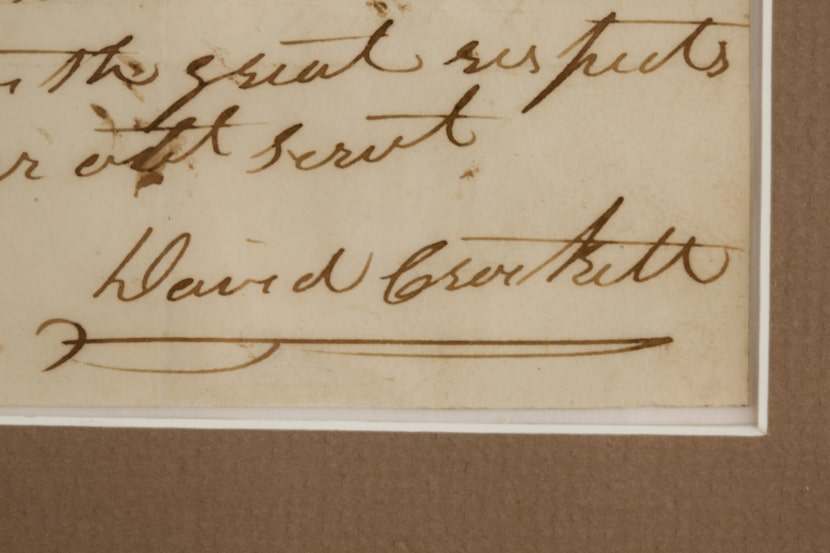 the great respects
obt servt
David Crockett